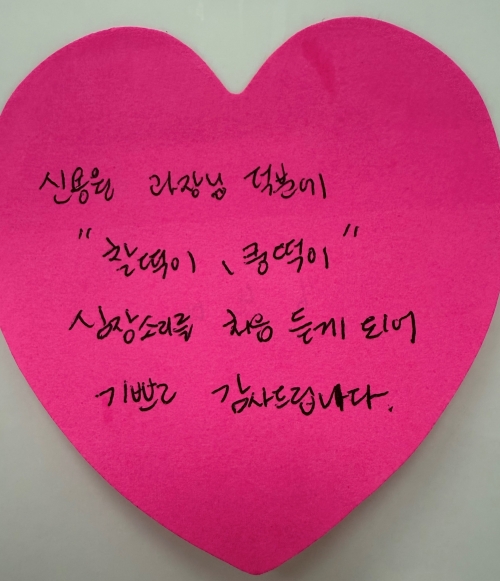 신용원 과장님 덕분에
"찰떡이, 콩떡이"
심장소리를 처음 듣게 되어
기쁘고 감사드립니다.